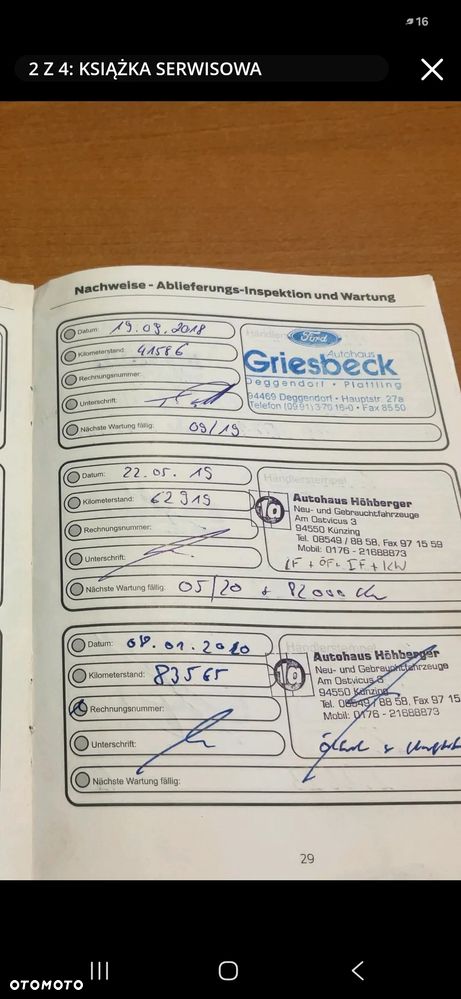 16
2 Z 4: KSIĄŻKA SERWISOWA
Nachweise - Ablieferungs-Inspektion und Wartung
Datum: 19.09.2018
Händler
Ford
Kilometerstand: 41586
Autohaus
Griesbeck
Rechnungsnummer:
Deggendorf • Plattling
Unterschrift:
94469 Deggendorf • Hauptstr. 27a
Telefon (09 91) 3 70 16-0 • Fax 85 50
Nächste Wartung fällig: 09/19
Datum: 22.05.19
Händlerstempel
Kilometerstand: 62919
Autohaus Höhberger
Neu- und Gebrauchtfahrzeuge
Am Ostvicus 3
Rechnungsnummer:
94550 Künzing
Tel. 08549 / 88 58, Fax 97 15 59
Mobil: 0176 - 21688873
Unterschrift:
IF + KW
Nächste Wartung fällig: 05/20
Datum: 08.01.2020
Händlerstempel
Autohaus Höhberger
Kilometerstand: 83565
Neu- und Gebrauchtfahrzeuge
Am Ostvicus 3
94550 Künzing
Rechnungsnummer:
Tel. 08549 / 88 58, Fax 97 15
Mobil: 0176 - 21688873
Unterschrift:
Nächste Wartung fällig:
29
OTOMOTO